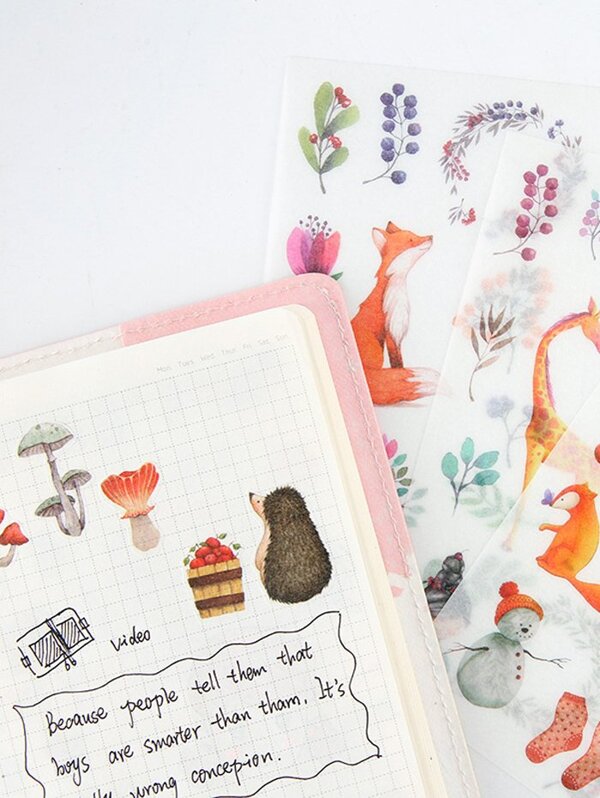 Mon Tues Wed Thur Fri Sat Sun
video
Because people tell them that
boys are smarter than tham. It's
wrong concepion.